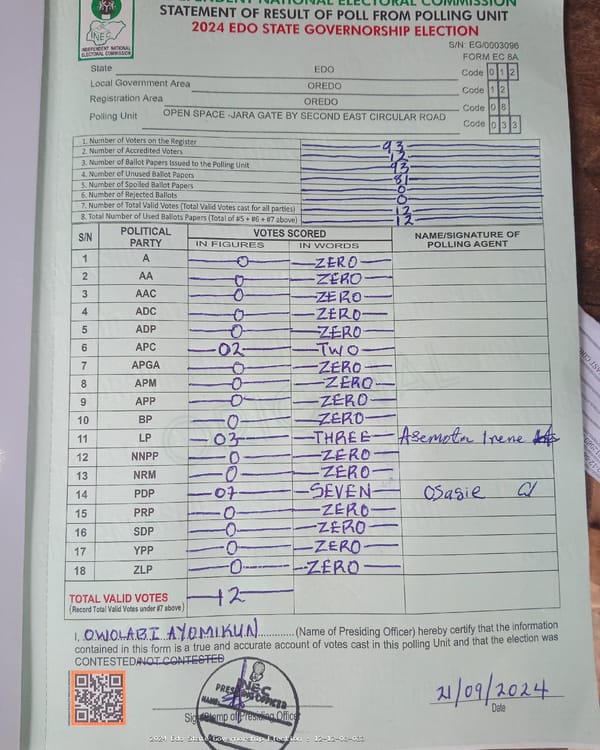 INDEPENDENT NATIONAL ELECTORAL COMMISSION
STATEMENT OF RESULT OF POLL FROM POLLING UNIT
2024 EDO STATE GOVERNORSHIP ELECTION
INEC
INDEPENDENT NATIONAL ELECTORAL COMMISSION
S/N: EG/0003096
FORM EC 8A
State EDO Code 0 1 2
Local Government Area OREDO Code 1 2
Registration Area OREDO Code 0 8
Polling Unit OPEN SPACE -JARA GATE BY SECOND EAST CIRCULAR ROAD Code 0 3 3
1. Number of Voters on the Register 93
2. Number of Accredited Voters 12
3. Number of Ballot Papers Issued to the Polling Unit 93
4. Number of Unused Ballot Papers 81
5. Number of Spoiled Ballot Papers 0
6. Number of Rejected Ballots 0
7. Number of Total Valid Votes (Total Valid Votes cast for all parties) 12
8. Total Number of Used Ballots Papers (Total of #5 + #6 + #7 above) 12
S/N POLITICAL PARTY VOTES SCORED NAME/SIGNATURE OF POLLING AGENT
IN FIGURES IN WORDS
1 A 0 ZERO
2 AA 0 ZERO
3 AAC 0 ZERO
4 ADC 0 ZERO
5 ADP 0 ZERO
6 APC 02 TWO
7 APGA 0 ZERO
8 APM 0 ZERO
9 APP 0 ZERO
10 BP 0 ZERO
11 LP 03 THREE Asemota Irene
12 NNPP 0 ZERO
13 NRM 0 ZERO
14 PDP 07 SEVEN Osasie
15 PRP 0 ZERO
16 SDP 0 ZERO
17 YPP 0 ZERO
18 ZLP 0 ZERO
TOTAL VALID VOTES 12
(Record Total Valid Votes under #7 above)
I, OWOLABI AYOMIKUN (Name of Presiding Officer) hereby certify that the information
contained in this form is a true and accurate account of votes cast in this polling Unit and that the election was
CONTESTED/NOT CONTESTED
INEC
PRESIDING OFFICER
NAME
21/09/2024
Sign/Stamp of Presiding Officer
Date
2024 Edo State Governorship Election : 12-12-08-033